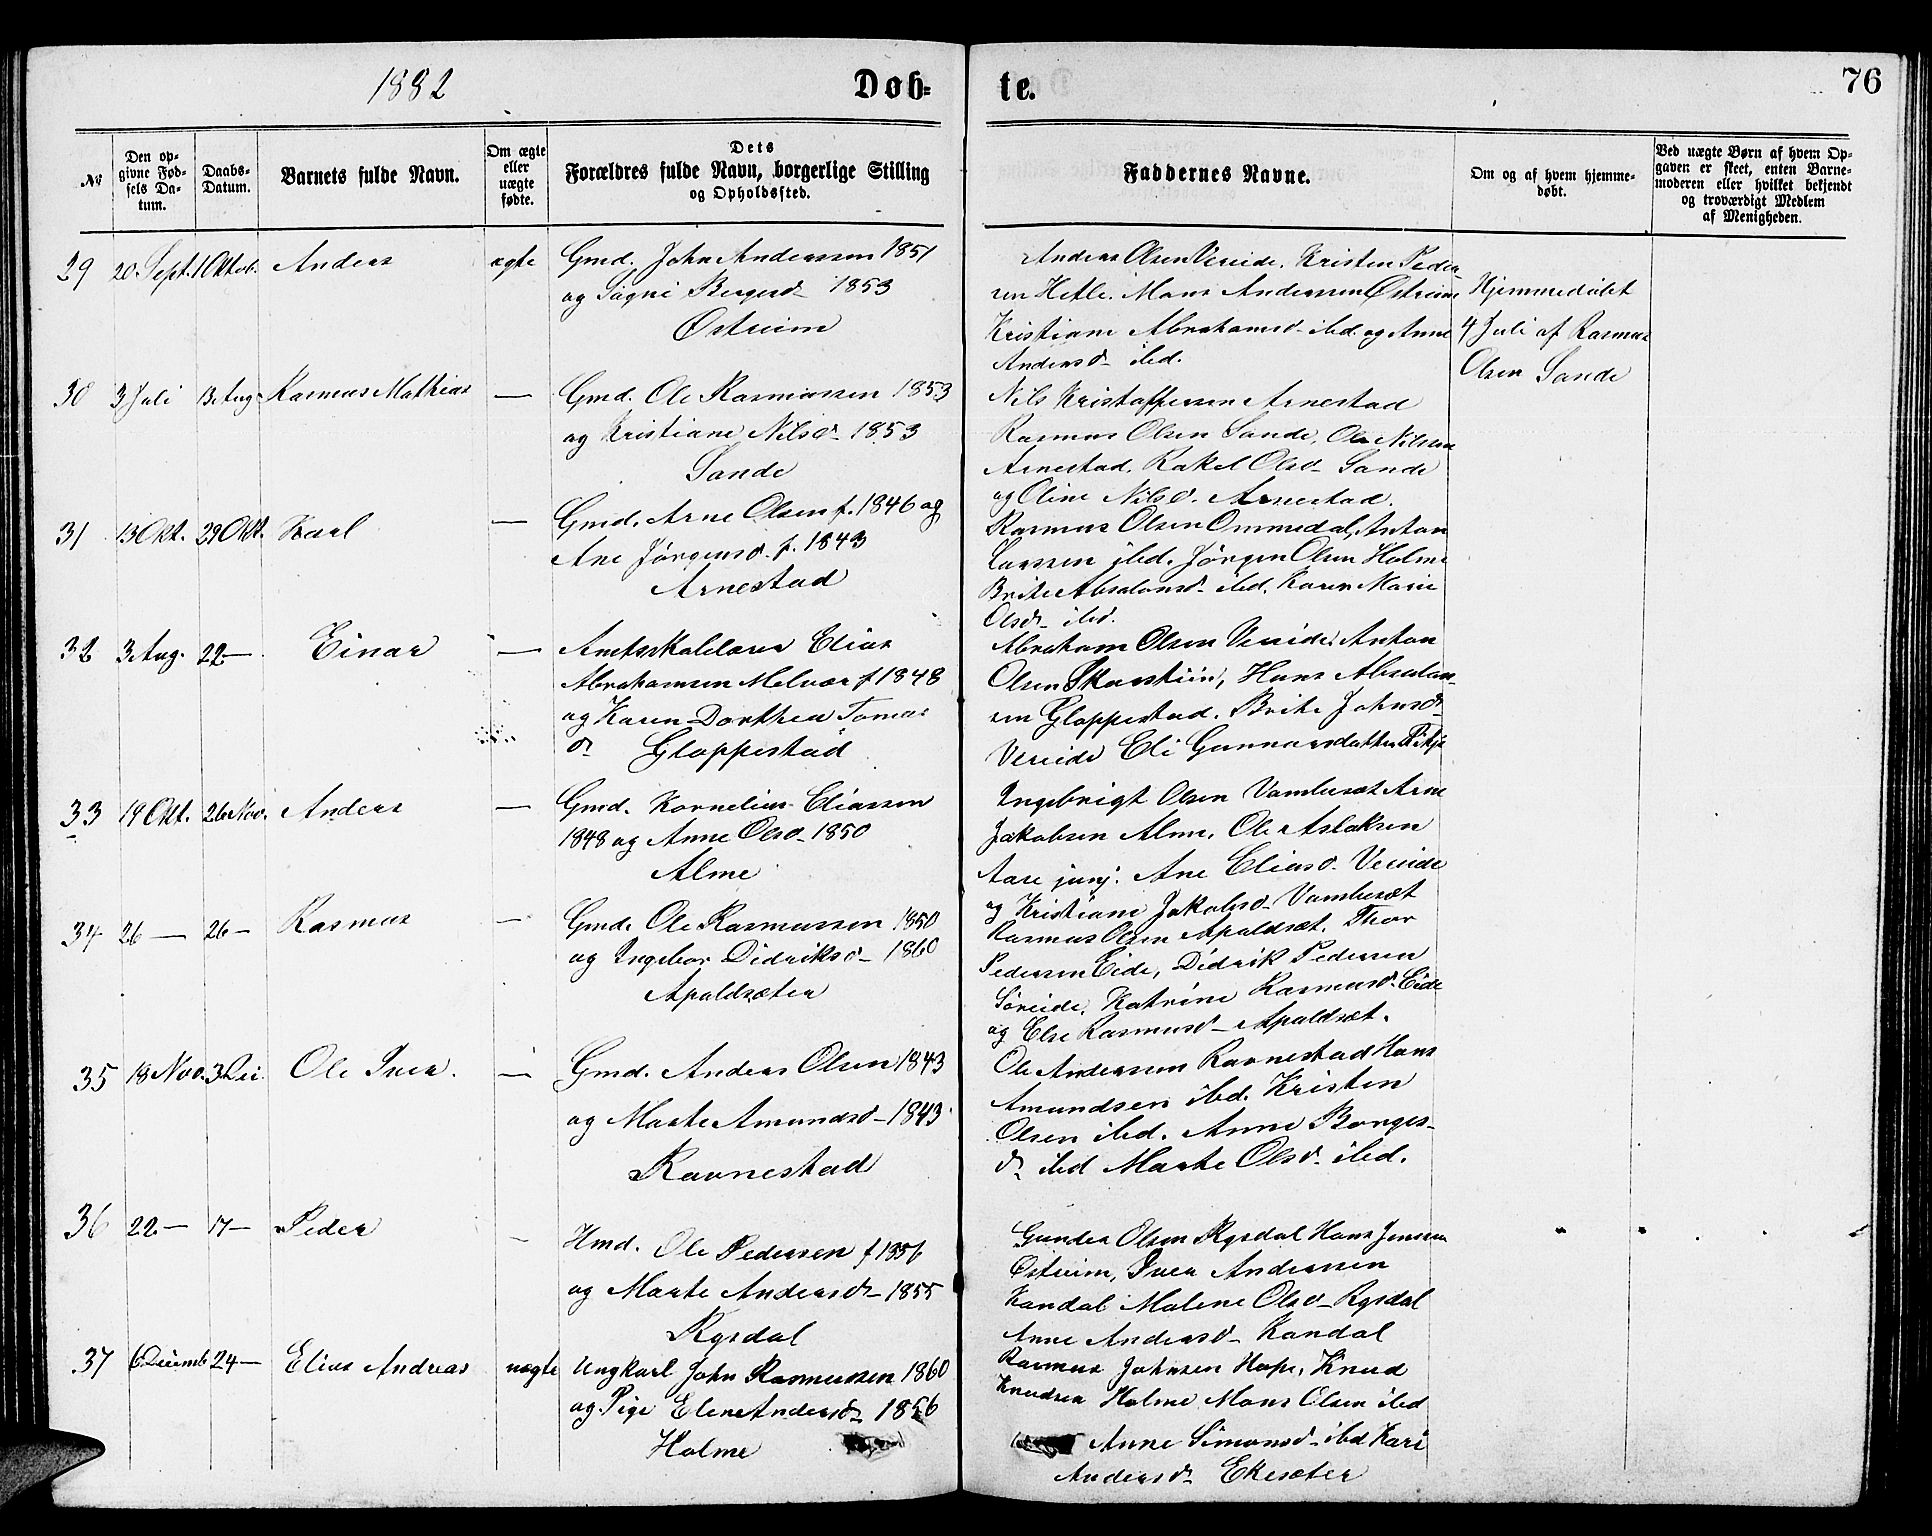 1882
Døb-
te.
76
No
Den op-
givne Fød-
sels Da-
tum.
Daabs-
Datum.
Barnets fulde Navn.
Om ægte
eller
uægte
fødte.
Dets
Forældres fulde Navn, borgerlige Stilling
og Opholdssted.
Faddernes Navne.
Om og af hvem hjemme-
døbt.
Ved uægte Børn af hvem Op-
gaven er skeet, enten Barne-
moderen eller hvilket bekjendt
og troværdigt Medlem
af Menigheden.
29 20 Sept. 1 Oktob. Anders ægte
Gmd. John Anderssen 1851
og Signi Bergesd 1853
Østreim
Anders Olsen Vereide. Kristen Peder-
sen Hetle. Mons Anderssen Østreim
Kristiane Abrahamsd ibd. og Anne
Andersd ibd.
Hjemmedøbt
4 Juli af Rasmus
Olsen Sande
30 3 Juli 13 Aug. Rasmus Mathias —
Gmd. Ole Rasmussen 1853
og Kristiane Nilsd 1853
Sande
Nils Kristoffersen Arnestad
Rasmus Olsen Sande, Ole Nilsen
Arnestad. Rakel Olsd Sande
og Oline Nilsd. Arnestad.
31 13 Okt. 29 Okt. Karl —
Gmd. Arne Olsen f. 1846 og
Ane Jørgensd. f. 1843
Arnestad
Rasmus Olsen Ommedal, Anton
Larssen ibd. Jørgen Olsen Holme
Brite Absalonsd ibd. Karen Marie
Olsd ibd.
32 3 Aug. 22 — Einar —
Amtsskolelærer Elias
Abrahamsen Melvær f 1848
og Karen Dorthea Tomas
d Gloppestad
Abraham Olsen Vereide, Anton
Olsen, Hans Absalon-
sen Gloppestad. Brite Johnsd
Vereide Eli Gunnarsdatter
33 19 Okt. 26 Nov. Anders —
Gmd. Kornelius Eliassen
1848 og Anne Olsd 1850
Alme
Ingebrigt Olsen Vambesæt Arne
Jakobsen Alme, Ole Aslaksen
Aare junj. Ane Eliasd Vereide
og Kristiane Jakobsd Vambesæt
34 26 — 26 — Rasmus —
Gmd. Ole Rasmussen 1850
og Ingebor Didriksd 1860
Apaldsæter
Rasmus Olsen Apaldsæt. Thor
Pedersen Eide, Didrik Pedersen
Søreide, Katrine Rasmusd. Eide
og Else Rasmusd Apaldsæt.
35 18 Nov. 3 Dei. Ole Iver. —
Gmd. Anders Olsen 1843
og Marte Amundsd 1843
Ravnestad
Ole Anderssen Ravnestad Hans
Amundsen ibd. Kristen
Olsen ibd. Anne Borges-
d ibd Marte Olsd ibd.
36 22 — 17 — Peder —
Hmd. Ole Pedersen f 1856
og Marte Andersd 1855
Rygdal
Gunder Olsen Rygdal Hans Jenssen
Østreim, Iver Anderssen
Kandal Malene Olsd Rygdal
Anne Andersd Kandal
37 6 Decemb 24 — Elias Andreas uægte
Ungkarl John Rasmussen 1860
og Pige Elene Andersd 1856
Holme
Rasmus Johnsen Hope, Knud
Knudsen Holme Mons Olsen ibd
Anne Simonsd ibd Kari
Andersd Ekesæter